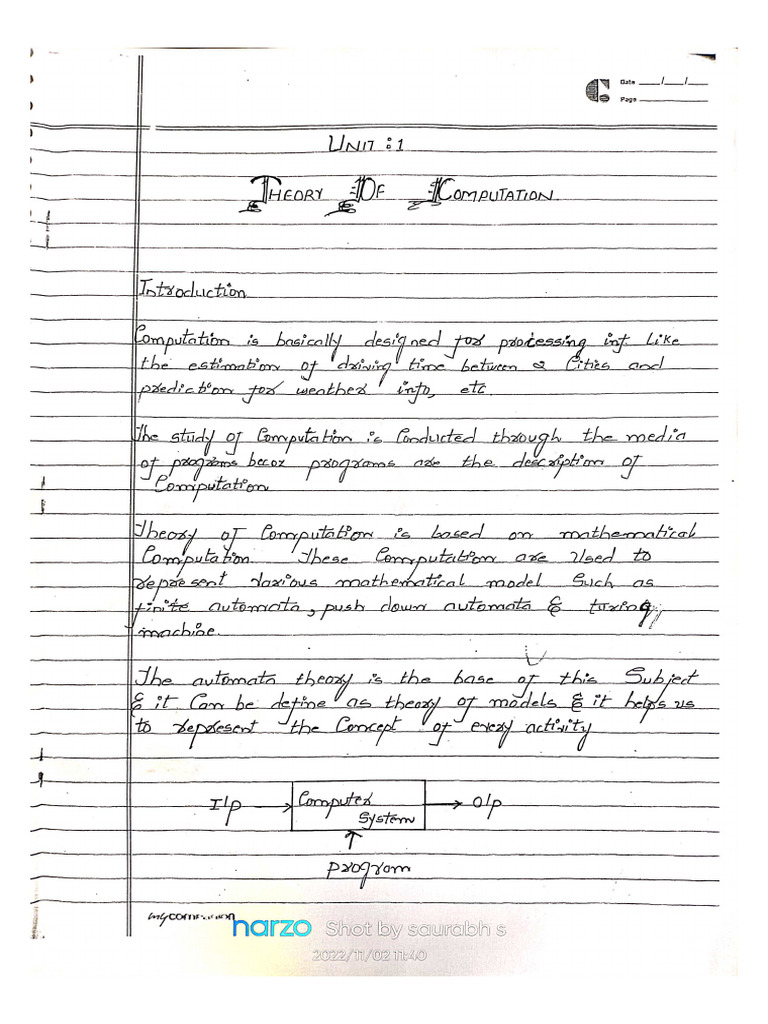 Date ___/___/___
Page
UNIT : 1
THEORY OF COMPUTATION
Introduction
Computation is basically designed for processing inf Like
the estimation of driving time between 2 Cities and
prediction for weather info, etc.
The study of Computation is Conducted through the media
of programs becoz programs are the description of
Computation
Theory of Computation is based on mathematical
Computation. These Computation are Used to
represent various mathematical model Such as
finite automata, push down automata & turing
machine.
The automata theory is the base of this Subject
& it Can be define as theory of models & it helps us
to represent the Concept of every activity
I/p → Computer → O/p
System
↑
program
mycompanion
narzo Shot by saurabh s
2022/11/02 11:40